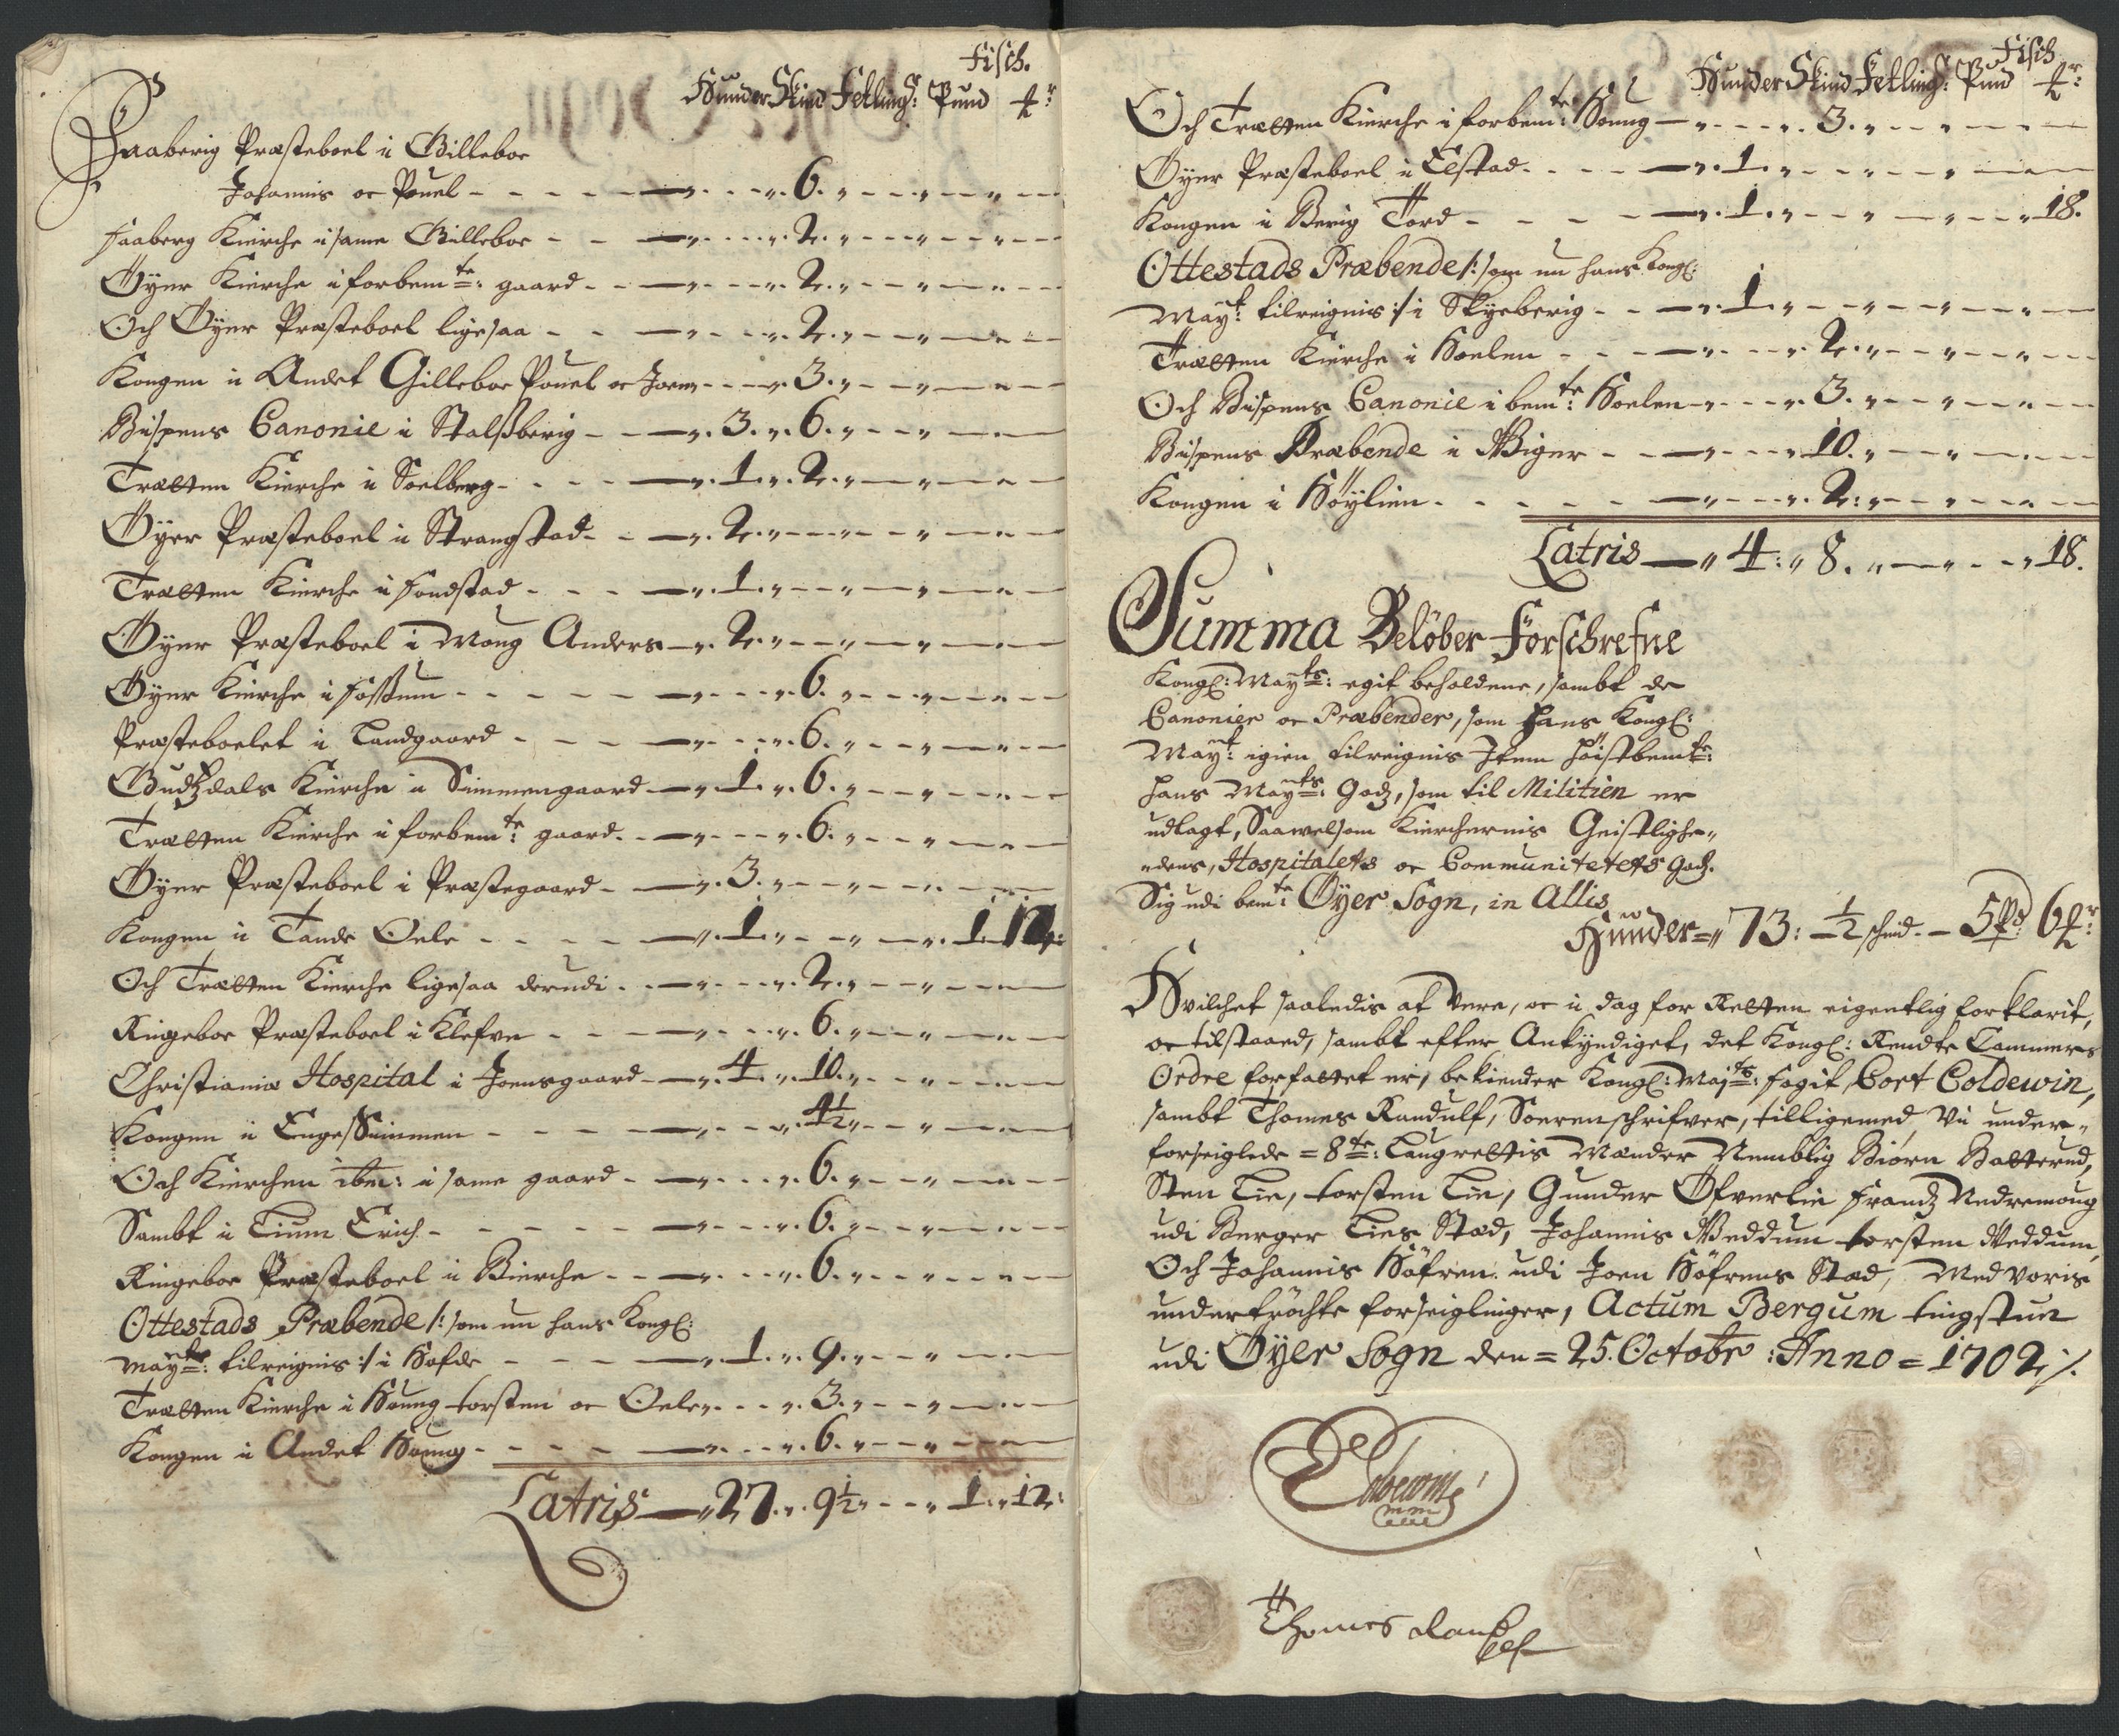 Fisch.
Hunder Skind Fetling: Pund
Faaberig Præsteboel i Gilleboe
Johannis oc Pouel - - - 6.
Faaberg Kierche i same Gilleboe - - 2.
Öyer Kierche i forbemte: gaard - - 2.
Och Öyer Præsteboel ligesaa - - 2.
Kongen i Andet Gilleboe Pouel oc Joen - - 3.
Bispens Canonie i Stalsberig - - 3. 6.
Trætten Kierche i Soelberg - - 1. 2.
Öyer Præsteboel i Strangstad - - 2.
Trætten Kierche i Fondstad - - 1.
Öyer Præsteboel i Moug Anders - 2.
Öyer Kierche i Fossum - - - 6.
Præsteboelet i Landgaard - - - 6.
Gudzdals Kierche i Simmengaard - 1. 6.
Trætten Kierche i forbemte: gaard - - 6.
Öyer Præsteboel i Præstegaard - - 3.
Kongen i Tande Oele - - - 1. - - 1. 12:
Och Trætten Kierche ligesaa derudi - - 2.
Ringeboe Præsteboel i Klefve - - - 6.
Christiania Hospital i Joensgaard - 4. 10.
Kongen i Enge Simmen - - - 4½
Och Kierchen ibm: i same gaard - - 6.
Sambt i Lium Erich - - - 6.
Ringeboe Præsteboel i Bierche - - 6.
Ottestads Præbende /: som nu hans Kongl:
Mayts: tilreignis :/ i Hofde - - - 1. 9.
Trætten Kierche i Houng torsten oc Oele - - 3.
Kongen i Andet Houng - - - 6.
Latris - 27. 9½ - - 1. 12:
Fisch
Hunder Skind Fetling: Pund
Och Trætten Kierche i forbemte: Houng - - 3.
Öyer Præsteboel i Elstad - - - 1.
Kongen i Berig Tord - - - 1. - - 18.
Ottestads Præbende /: som nu hans Kongl:
Mayt: tilreignis :/ i Skyeberig - - 1.
Trætten Kierche i Hoelen - - - 2.
Och Bispens Canonie i bemte: Hoelen - - 3.
Bispens Præbende i Wiger - - - 10.
Kongen i Höylien - - - 2:
Latris - 4: 8. - - 18.
Summa Belöber Forschrefne
Kongl: Mayts: egit beholdene, sambt de
Canonier oc Præbender, som Hans Kongl:
Mayt: igien tilreignis Item Höistbemte:
Hans Mayts: Godz, som til Militien er
udlagt, Saavelsom Kierchernis Geistlighe-
dens, Hospitalets oc Communitetets Godz.
Sig udi bemte: Öyer Sogn, in Allis
Hunder = 73: - ½ schind - 5 Pd: 6
Hvilchet saaledis at være, oc i dag for Retten eigentlig forklarit,
oc tilstaaed, sambt efter Ankyndiget, det Kongl: Rendte Cammers
Ordre forfattet er, bekiender Kongl: Majts: fogit, Cort Coldewin,
sambt Thomes Randulf, Sorenschrifver, tilligemed Vi under-
forseiglede = 8te: Laugrettis Mænder Nemblig Biörn Batterud,
Sten Lie, torsten Lie, Gunder Öfverlie Frandz Nedremoug
udi Berger Lies Stæd, Johannis Weddum torsten Weddum,
Och Johannis Höfren udi Joen Höfrens Stæd, Med voris
undertröchte forseiglinger, Actum Bergum tingstue
udi Öyer Sogn den = 25. Octobr: Anno = 1702 ./.
Coldewin
mm
Thomes Randulf